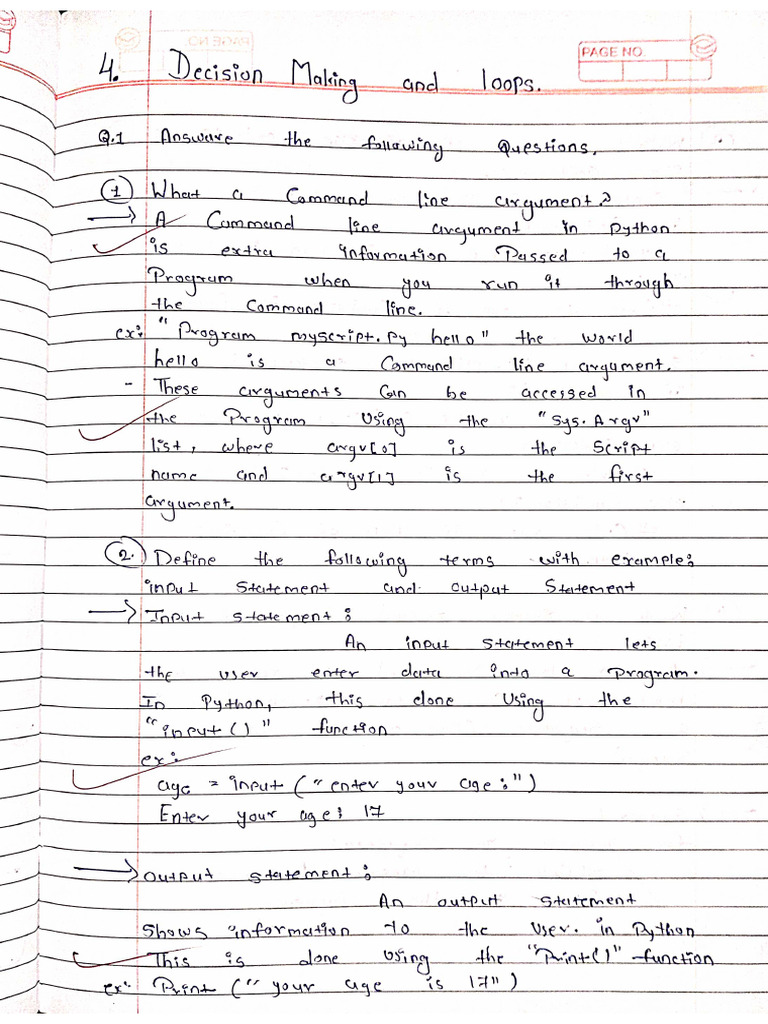 PAGE NO.
4. Decision Making and loops.
Q.1 Answare the following Questions.
① What a Command line argument?
→ A Command line argument in Python
is extra information Passed to a
Program when you run it through
the Command line.
ex: "Program myscript.py hello" the world
hello is a Command line argument.
- These arguments Can be accessed in
the Program Using the "Sys.Argv"
list, where argv[0] is the Script
name and argv[1] is the first
argument.
②. Define the following terms with example:
input Statement and output Statement
→ Input statement:
An input statement lets
the user enter data into a Program.
In Python, this done Using the
"input()" function
ex:
age = input ("enter your age:")
Enter your age: 17
→ output statement:
An output statement
Shows information to the User. in Python
This is done Using the "Print()" function
ex: Print ("your age is 17")